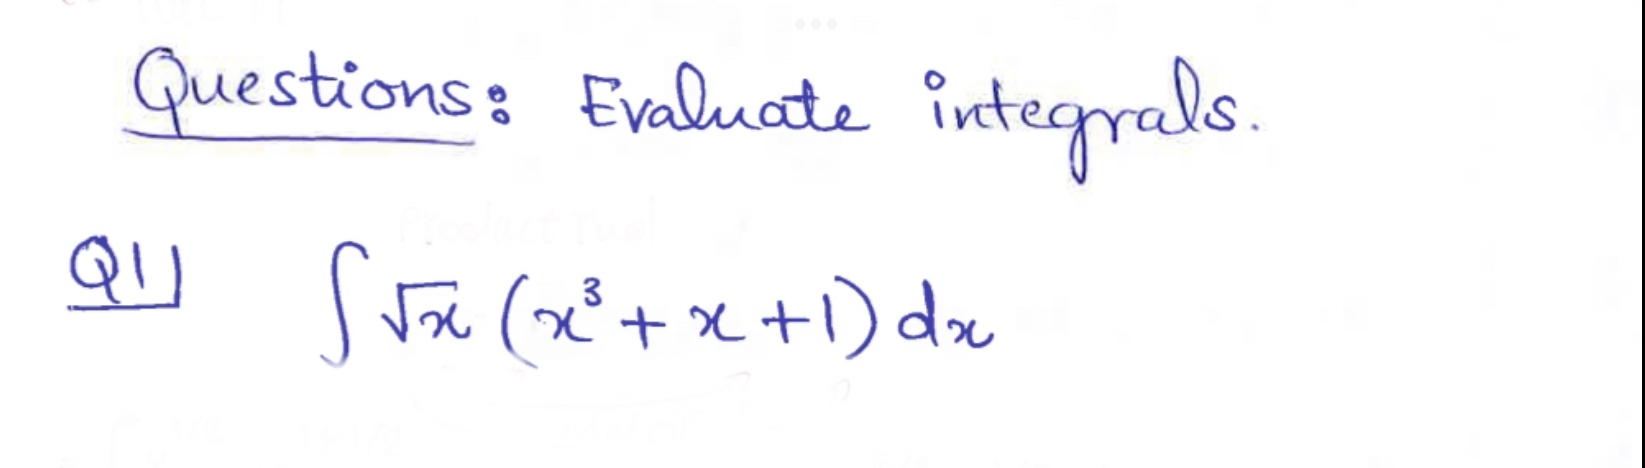 Questions: Evaluate integrals.
Q1] ∫ √x (x³ + x + 1) dx